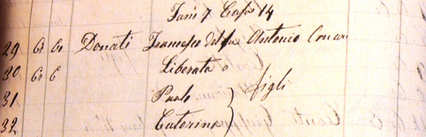 Fam 7 Casa 14
29 Co Co Donati Francesco del fu Antonio con
30 Co C Liberata
31 Paolo } figli
32 Caterina }